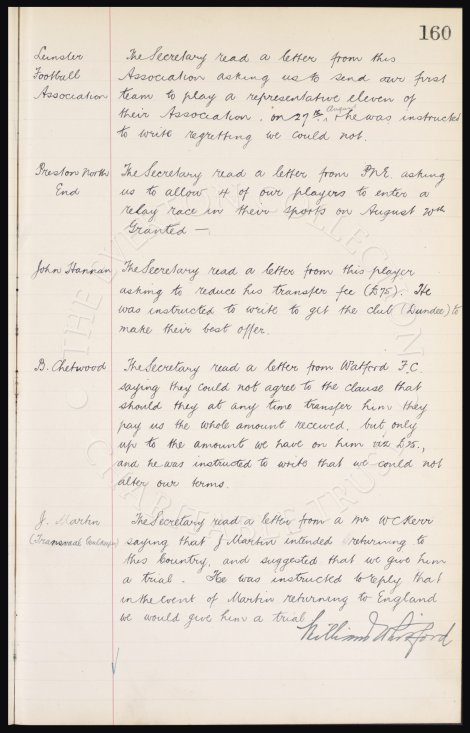 160
Leinster
Football
Association
The Secretary read a letter from this
Association asking us to send our first
team to play a representative eleven of
their Association. on 27th August & he was instructed
to write regretting we could not.
Preston North
End
The Secretary read a letter from P.N.E. asking
us to allow 4 of our players to enter a
relay race in their Sports on August 20th
Granted —
John Hannan
The Secretary read a letter from this player
asking to reduce his transfer fee (£75). He
was instructed to write to get the club (Dundee) to
make their best offer.
B. Chetwood
The Secretary read a letter from Watford F.C.
saying they could not agree to the clause that
should they at any time transfer him they
pay us the whole amount received, but only
up to the amount we have on him viz £75.,
and he was instructed to write that we could not
alter our terms.
J. Martin
(Transvaal Goalkeeper)
The Secretary read a letter from a Mr W C Kerr
saying that J Martin intended returning to
this Country, and suggested that we give him
a trial. He was instructed to reply that
in the event of Martin returning to England
we would give him a trial
THE EVERTON COLLECTION
CHARITABLE TRUST